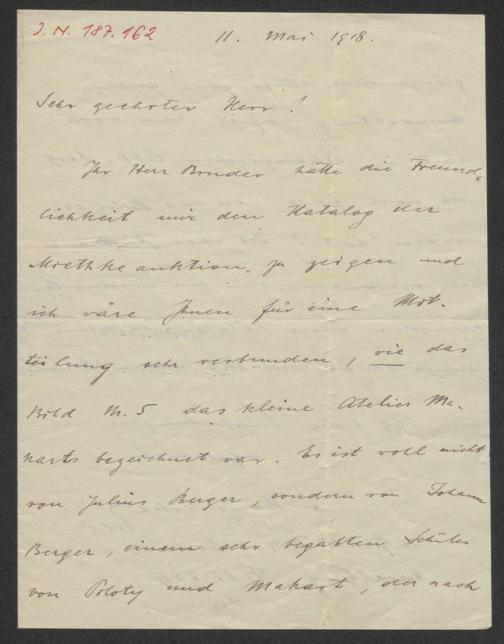 J. N. 187.162
11. Mai 1918.
Sehr geehrter Herr !
Ihr Herr Bruder hatte die Freund-
lichkeit mir den Katalog der
Miethke auktion zu zeigen und
ich wäre Ihnen für eine Mit-
teilung sehr verbunden, wie das
Bild Nr. 5 das kleine Atelier Ma-
karts bezeichnet war. Es ist wohl nicht
von Julius Berger, sondern von Johann
Berger, einem sehr begabten Schüler
von Piloty und Makart, der nach